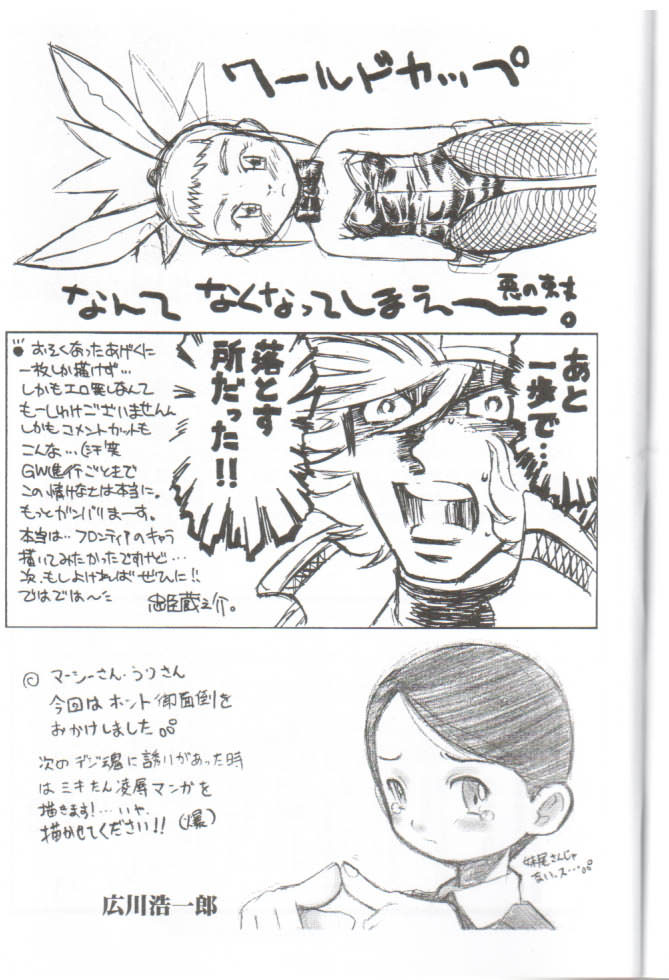 ワールドカップ
なんて なくなってしまえー。
悪の
あと
一歩で…
落とす
所だった!!
おそくなったあげくに
一枚しか描けず…
しかもエロ
もーしわけございませんん
しかもコメントカットも
こんな…
GW進行ごときで
この情けなさは本当に。
もっとガンバりまーす。
本当は… フロンティアのキャラ
描いてみたかったですけど…
次、もしよければぜひに!!
ではでは〜
忠臣蔵之介。
マーシーさん・うりさん
今回はホント御面倒を
おかけしました。。
次のデジ魂に誘いがあった時
はミキたん凌辱マンガを
描きます!…いや、
描かせてください!!(爆)
妹尾さんじゃ
ないっス…
広川浩一郎